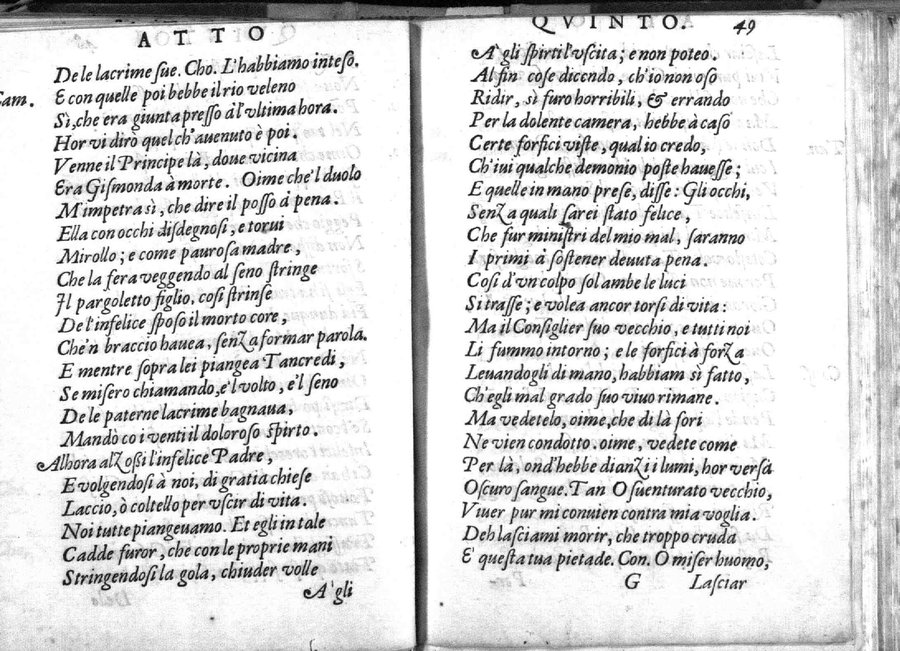 ATTO
De le lacrime sue. Cho. L'habbiamo inteso.
Cam. E con quelle poi bebbe il rio veleno
Sì, che era giunta presso a l'ultima hora.
Hor vi dirò quel ch'auenuto è poi.
Venne il Principe là, doue vicina
Era Gismonda à morte. Oime che'l duolo
M'impetra sì, che dire il posso à pena.
Ella con occhi disdegnosi, e torui
Mirollo; e come paurosa madre,
Che la fera veggendo al seno stringe
Il pargoletto figlio, cosi strinse
De l'infelice sposo il morto core,
Che'n braccio hauea, senza formar parola.
E mentre sopra lei piangea Tancredi,
Se misero chiamando, e'l volto, e'l seno
De le paterne lacrime bagnaua,
Mandò co i venti il doloroso spirto.
Alhora alzossi l'infelice Padre,
E volgendosi à noi, di gratia chiese
Laccio, ò coltello per vscir di vita.
Noi tutte piangeuamo. Et egli in tale
Cadde furor, che con le proprie mani
Stringendosi la gola, chiuder volle
A' gli
QVINTO. 49
A' gli spirti l'vscita; e non poteo.
Al fin cose dicendo, ch'io non oso
Ridir, sì furo horribili, & errando
Per la dolente camera, hebbe à caso
Certe forfici viste, qual io credo,
Ch'iui qualche demonio poste hauesse;
E quelle in mano prese, disse: Gli occhi,
Senza quali sarei stato felice,
Che fur ministri del mio mal, saranno
I primi à sostener deuuta pena.
Cosi d'vn colpo sol ambe le luci
Si trasse; e volea ancor torsi di vita:
Ma il Consiglier suo vecchio, e tutti noi
Li fummo intorno; e le forfici à forza
Leuandogli di mano, habbiam sì fatto,
Ch'egli mal grado suo viuo rimane.
Ma vedetelo, oime, che di là fori
Ne vien condotto. oime, vedete come
Per là, ond'hebbe dianzi i lumi, hor versa
Oscuro sangue. Tan O suenturato vecchio,
Viuer pur mi conuien contra mia voglia.
Deh lasciami morir, che troppo cruda
E' questa tua pietade. Con. O miser huomo,
G Lasciar